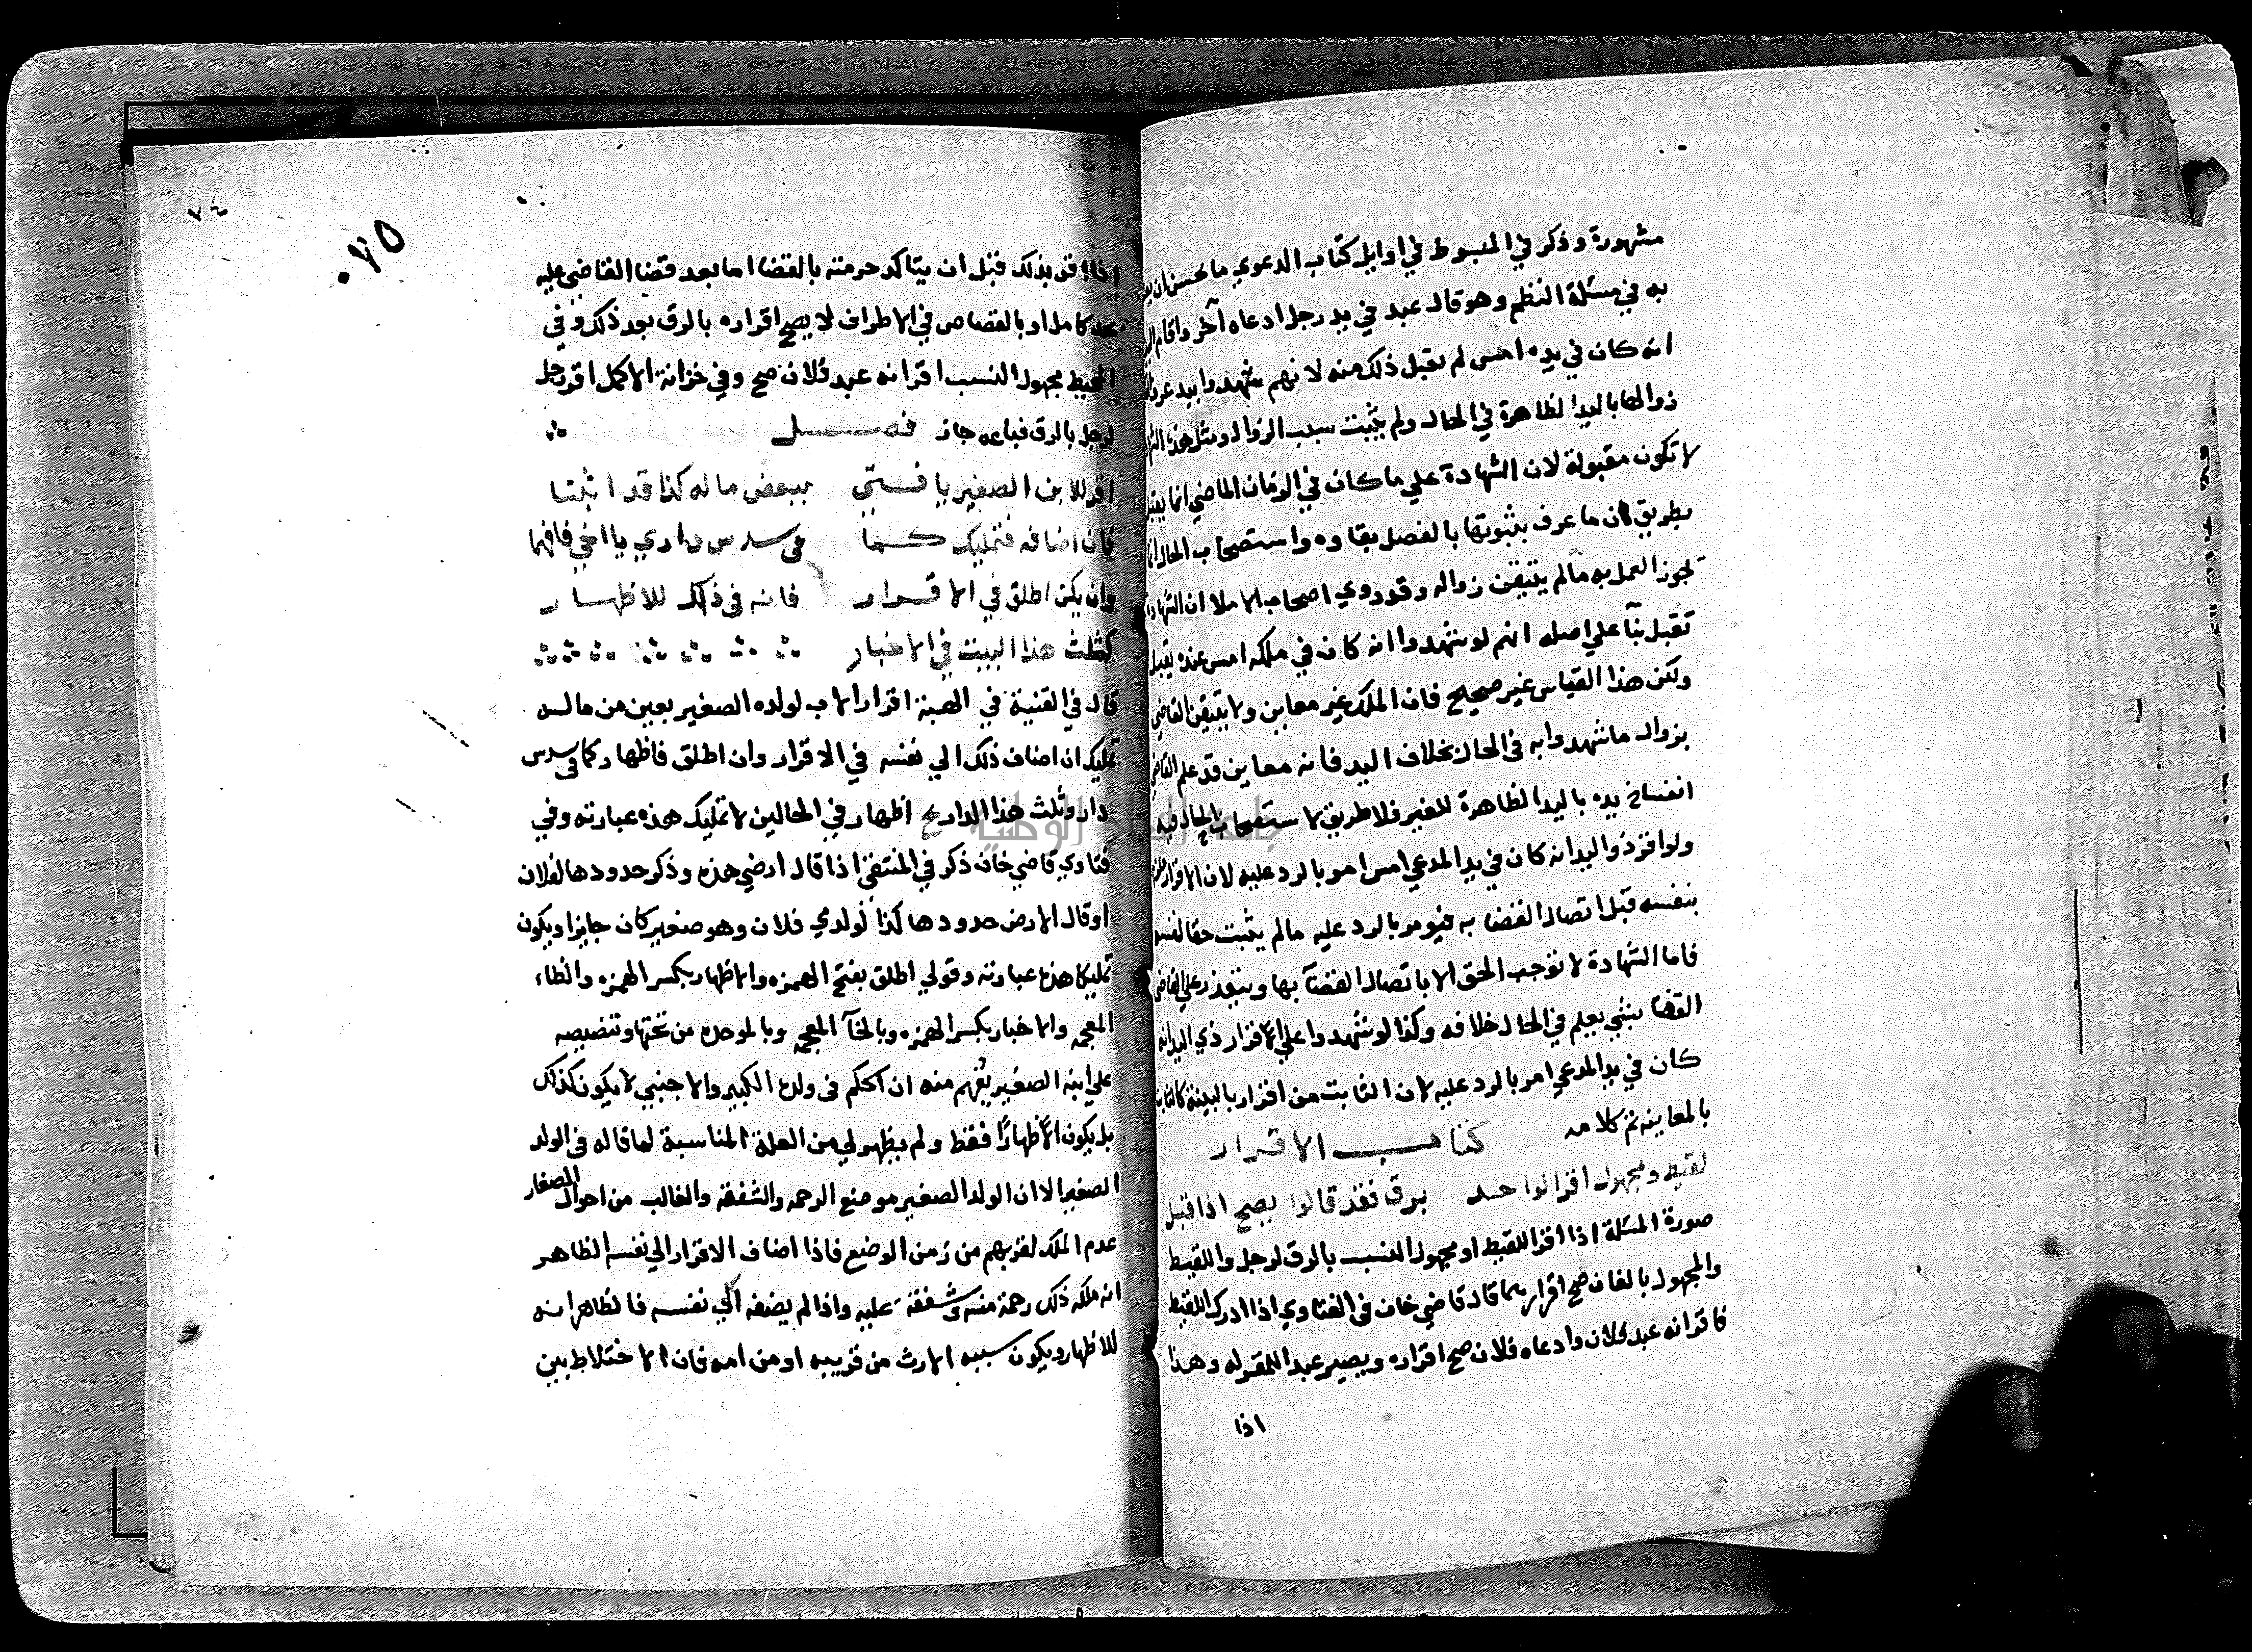 مشهورة وذكر في المبسوط في اوايل كتاب الدعوي ما يحسن ان
به في مسئلة النظم وهو قال عبد في يد رجل ادعاه آخر واقام
انه كان في يده امس لم تقبل ذلك منه لانهم شهدوا بيد عرف
زوالها باليد الظاهرة في الحال ولم يثبت سبب الزوال ومثل هذه
لا تكون مقبولة لان الشهادة علي ما كان في الزمان الماضي انما يقبل
بطريق ان ما عرف بثبوتها بالفصل بقاوه واستصحاب الحال انما
يجوز العمل به ما لم يتيقن زواله وقد روي اصحاب الاملا ان الشهادة
تقبل بنآ علي اصله انهم لو شهدوا انه كان في ملكه امس عنده يقبل
ولكن هذا القياس غير صحيح فان الملك غير معاين ولا يتيقن القاضي
بزوال ما شهدوا به في الحال بخلاف اليد فانه معاين قد علم القاضي
انفساخ يده باليد الظاهرة للغير فلا طريق لاستصحاب الحال فيه
ولو اقر ذو اليد انه كان في يد المدعي امس امر بالرد عليه لان الاقرار
بنفسه قبل اتصال القضا به فيومر بالرد عليه ما لم يثبت حقا لنفسه
فاما الشهادة لا توجب الحق الا باتصال القضآ بها ويتعذر علي القاضي
القضا بشي يعلم في الحال خلافه وكذا لو شهدوا علي اقرار ذي اليد انه
كان في يد المدعي امر بالرد عليه لان الثابت من اقرار بالبينة كالثابت
بالمعاينه تم كلامه
كتاب الاقرار
لقيط ومجهول اقرا لواحد برق فقد قالوا يصح اذا قبل
صورة المسئلة اذا اقر اللقيط او مجهول النسب بالرق لرجل واللقيط
والمجهول بالغان صح اقرارهما قال قاضي خان في الفتاوي اذا ادرك اللقيط
فاقر انه عبد فلان وادعاه فلان صح اقراره ويصير عبدا للمقر له وهذا
اذا
٧٤
٠٧٥
اذا اقر بذلك قبل ان يتاكد حرمته بالقضا اما بعد قضا القاضي عليه
بحد كامل او بالقصاص في الاطراف لا يصح اقراره بالرق بعد ذلك وفي
المحيط مجهول النسب اقر انه عبد فلان صح وفي خزانة الاكمل اقر رجل
لرجل بالرق فباعه جاز فصل
اقر للابن الصغير يا فتي ببعض ماله كذا قد اثبتا
فان اضافه فتمليك كما في سدس داري يا اخي فافهما
وان يكن اطلق في الاقرار فانه في ذلك للاظهار
كثلث هذا البيت في الاخبار
قال في القنية في الهبة اقرار الاب لولده الصغير بعين من ماله
تمليك ان اضاف ذلك الي نفسه في الاقرار وان اطلق فاظهار كما في سدس
دار وثلث هذا الدار اظهار في الحالين لا تمليك هذه عبارته وفي
فتاوي قاضي خان ذكر في المنتقي اذا قال ارضي هذه وذكر حدودها لفلان
او قال الارض حدودها كذا لولدي فلان وهو صغير كان جايزا ويكون
تمليكا هذه عبارته وقولي اطلق بفتح الهمزه والاظهار بكسر الهمزه والظاء
المعجمه والاخبار بكسر الهمزه وبالخآ المعجمه وبالموحده من تحتها وتنصيصه
علي ابنه الصغير يفهم منه ان الحكم في ولده الكبير والاجنبي لا يكون كذلك
بل يكون الاظهارًا فقط ولم يظهر لي من العلة المناسبة لما قاله في الولد
الصغير الا ان الولد الصغير موضع الرحمه والشفقة والغالب من احوال الصغار
عدم الملك لقربهم من زمن الوضع فاذا اضاف الاقرار الي نفسه الظاهر
انه ملكه ذلك رحمة منه وشفقة عليه واذا لم يضفه الي نفسه فالظاهر انه
للاظهار ويكون سببه الارث من قريبه او من امه فان الاختلاط بين